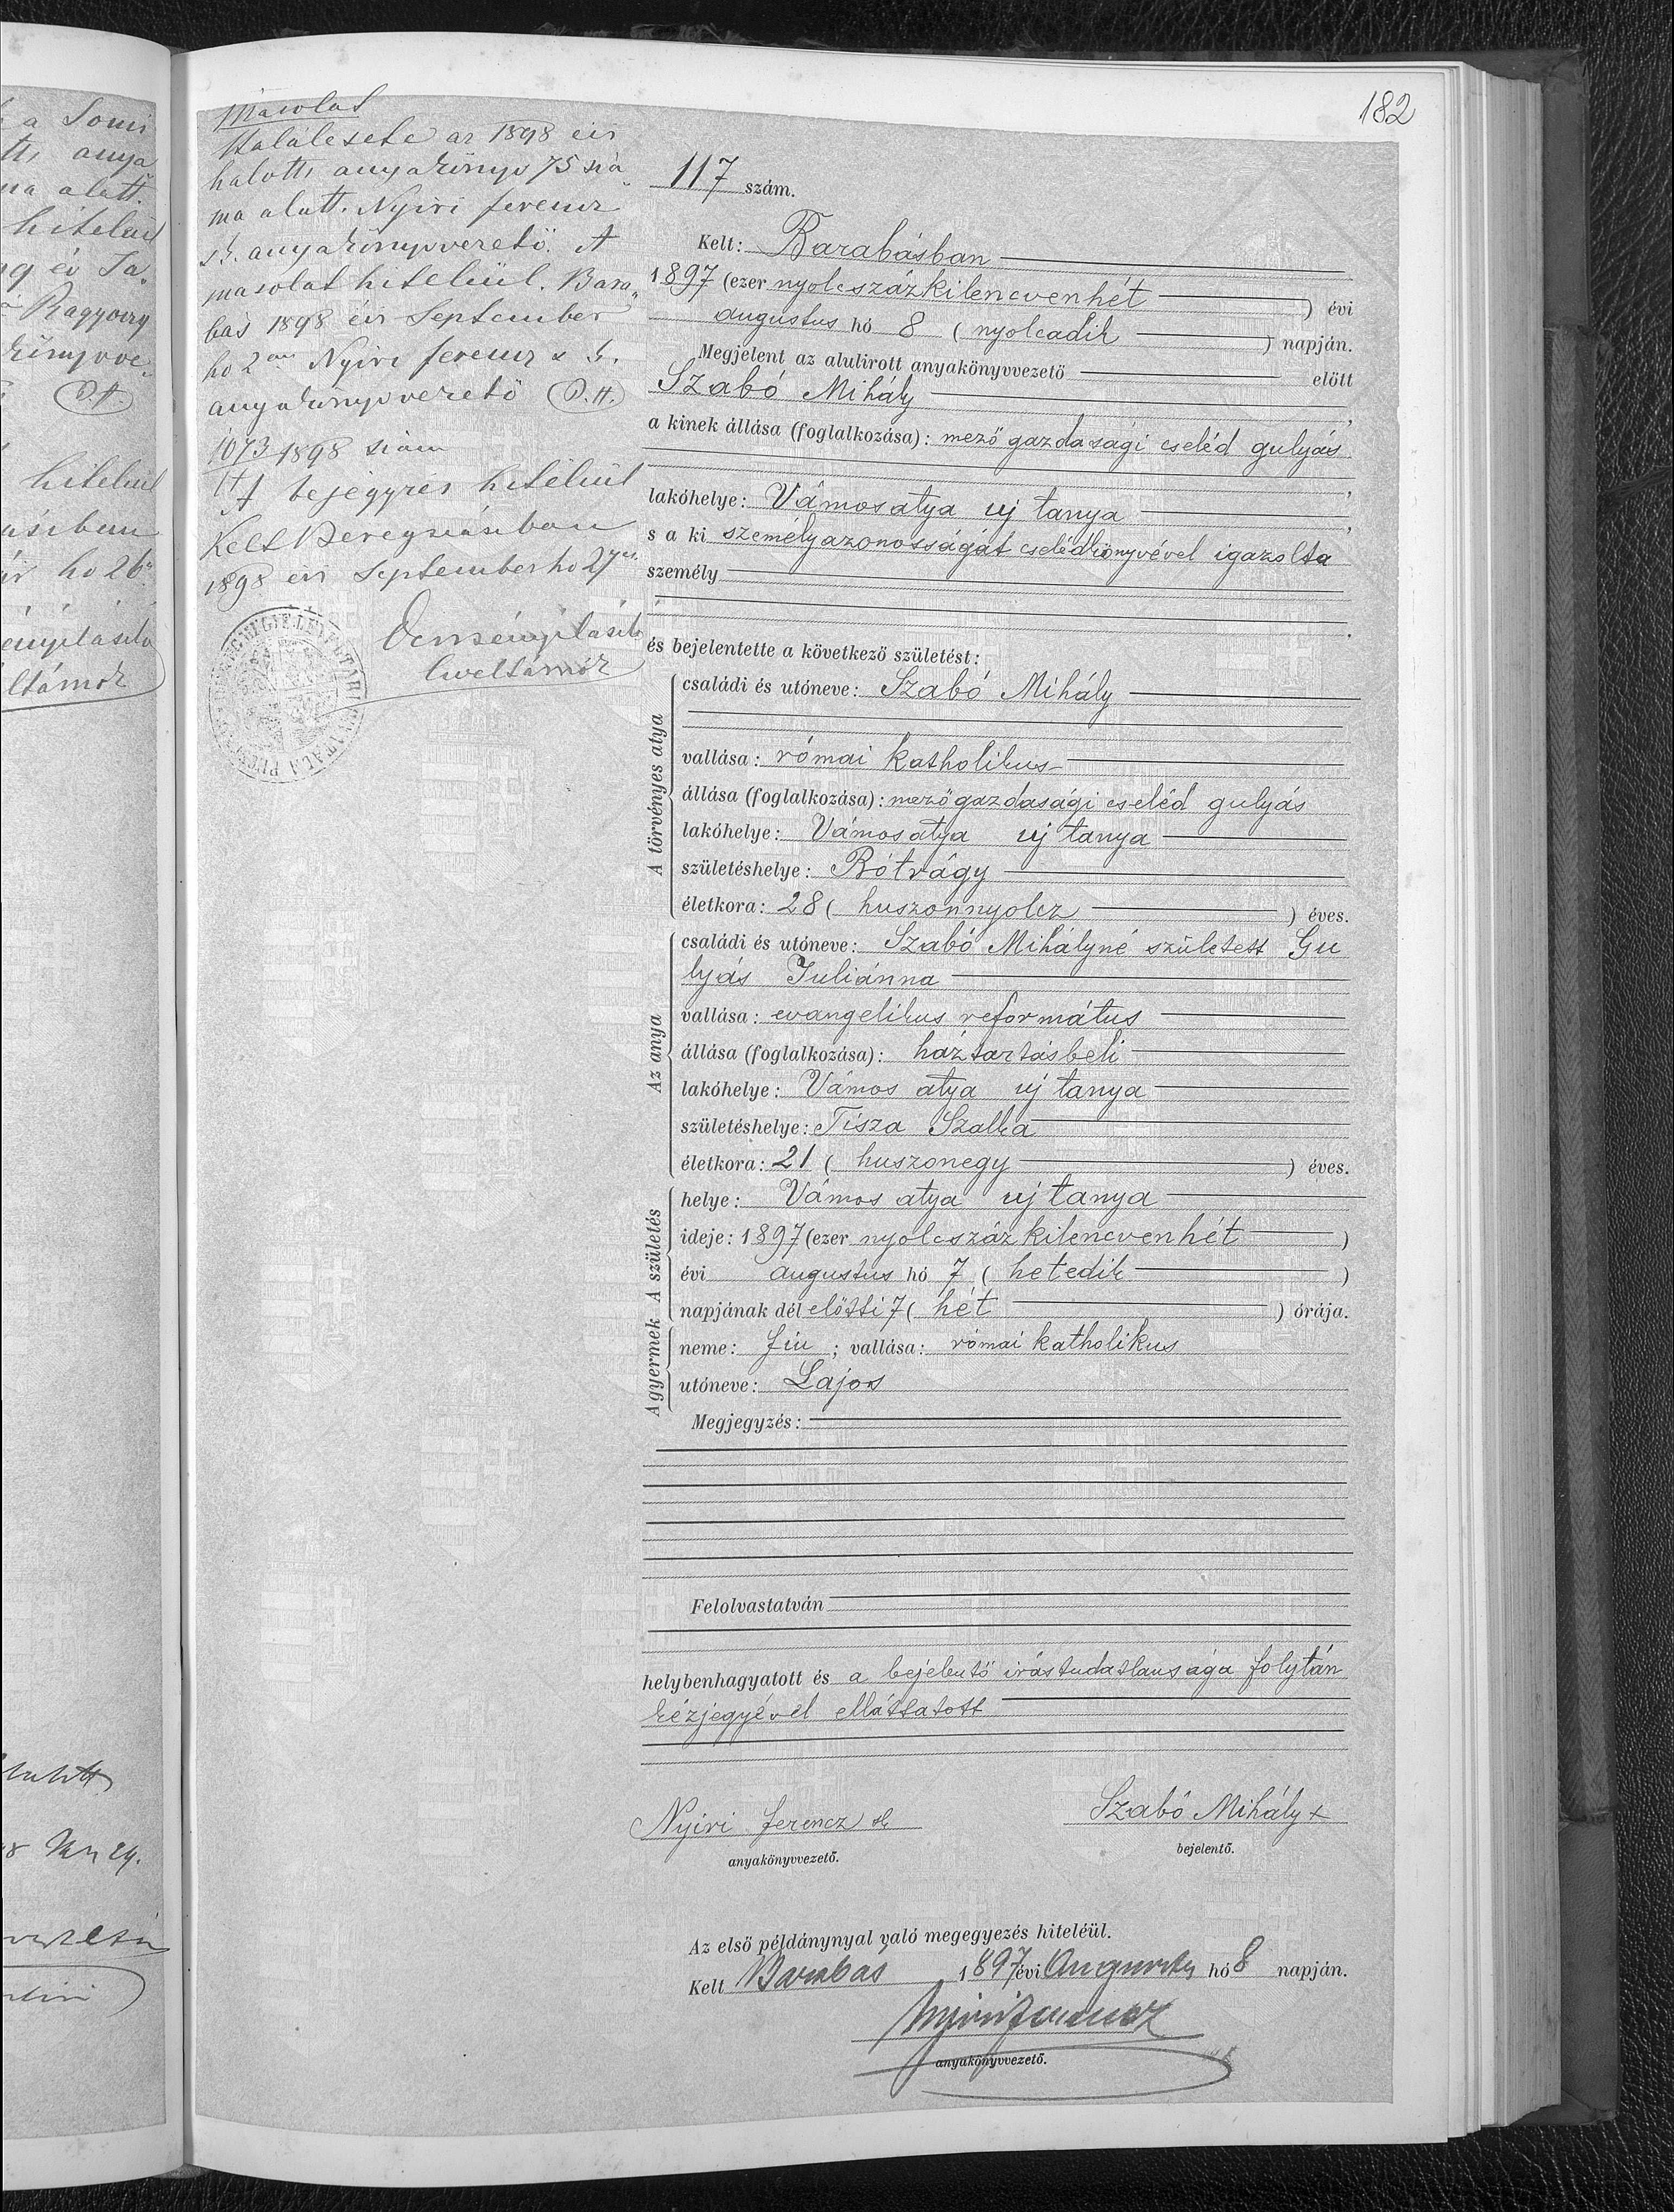 182
Másolat
Halálesete az 1898 évi
halotti anyakönyv 75 szá„
ma alatt. Nyiri ferencz
s.k. anyakönyvvezető. A
másolat hiteléül. Bara„
bás 1898 évi September
hó 2án Nyiri ferencz s. k.
anyakönyvvezető P.H.
1073/1898 szám
A bejegyzés hiteléül
Kelt Beregszászban
1898 évi September hó 27én
117 szám.
Kelt: Barabásban
1897 (ezer nyolcszázkilencvenhét ) évi
augustus hó 8 ( nyolcadik ) napján.
Megjelent az alulirott anyakönyvvezető előtt
Szabó Mihály ,
a kinek állása (foglalkozása): mező gazdasági cseléd gulyás
,
lakóhelye: Vámosatya uj tanya ,
s a ki személyazonosságát cselédkönyvével igazolta
személy
.
és bejelentette a következő születést:
A törvényes atya
családi és utóneve: Szabó Mihály
vallása: római katholikus
állása (foglalkozása): mezőgazdasági cseléd gulyás
lakóhelye: Vámosatya uj tanya
születéshelye: Bótrágy
életkora: 28 ( huszonnyolcz ) éves.
Az anya
családi és utóneve: Szabó Mihályné született Gu
lyás Juliánna
vallása: evangelikus református
állása (foglalkozása): háztartásbeli
lakóhelye: Vámos atya uj tanya
születéshelye: Tisza Szalka
életkora: 21 ( huszonegy ) éves.
A születés
helye: Vámos atya uj tanya
ideje: 1897 (ezer nyolcszáz kilencvenhét )
évi augustus hó 7 ( hetedik )
napjának dél előtti 7 ( hét ) órája.
A gyermek
neme: fiu ; vallása: római katholikus
utóneve: Lajos
Megjegyzés:
Felolvastatván
helybenhagyatott és a bejelentő irástudatlansága folytán
kézjegyével elláttatott
Nyiri ferencz sk
anyakönyvvezető.
Szabó Mihály +
bejelentő.
Az első példánynyal való megegyezés hiteléül.
Kelt Barabás 1897 évi Augustus hó 8 napján.
Nyiri ferencz
anyakönyvvezető.